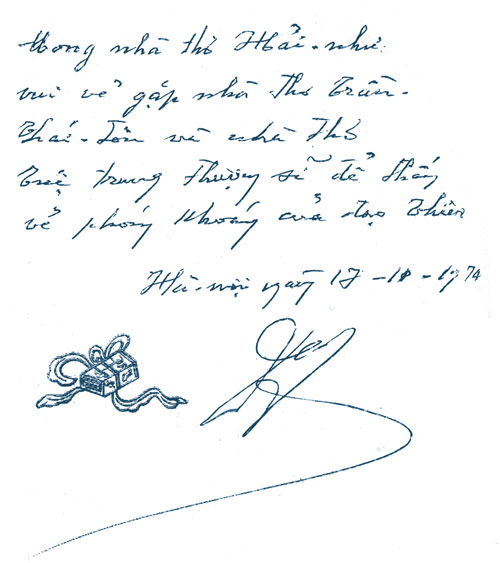 Mong nhà thơ Hải-như
vui vẻ gặp nhà thơ Trần-
Thái-Tôn và nhà thơ
Tuệ Trung Thượng sĩ để thấy
vẻ phóng khoáng của đạo Thiền
Hà-nội ngày 17-10-1974